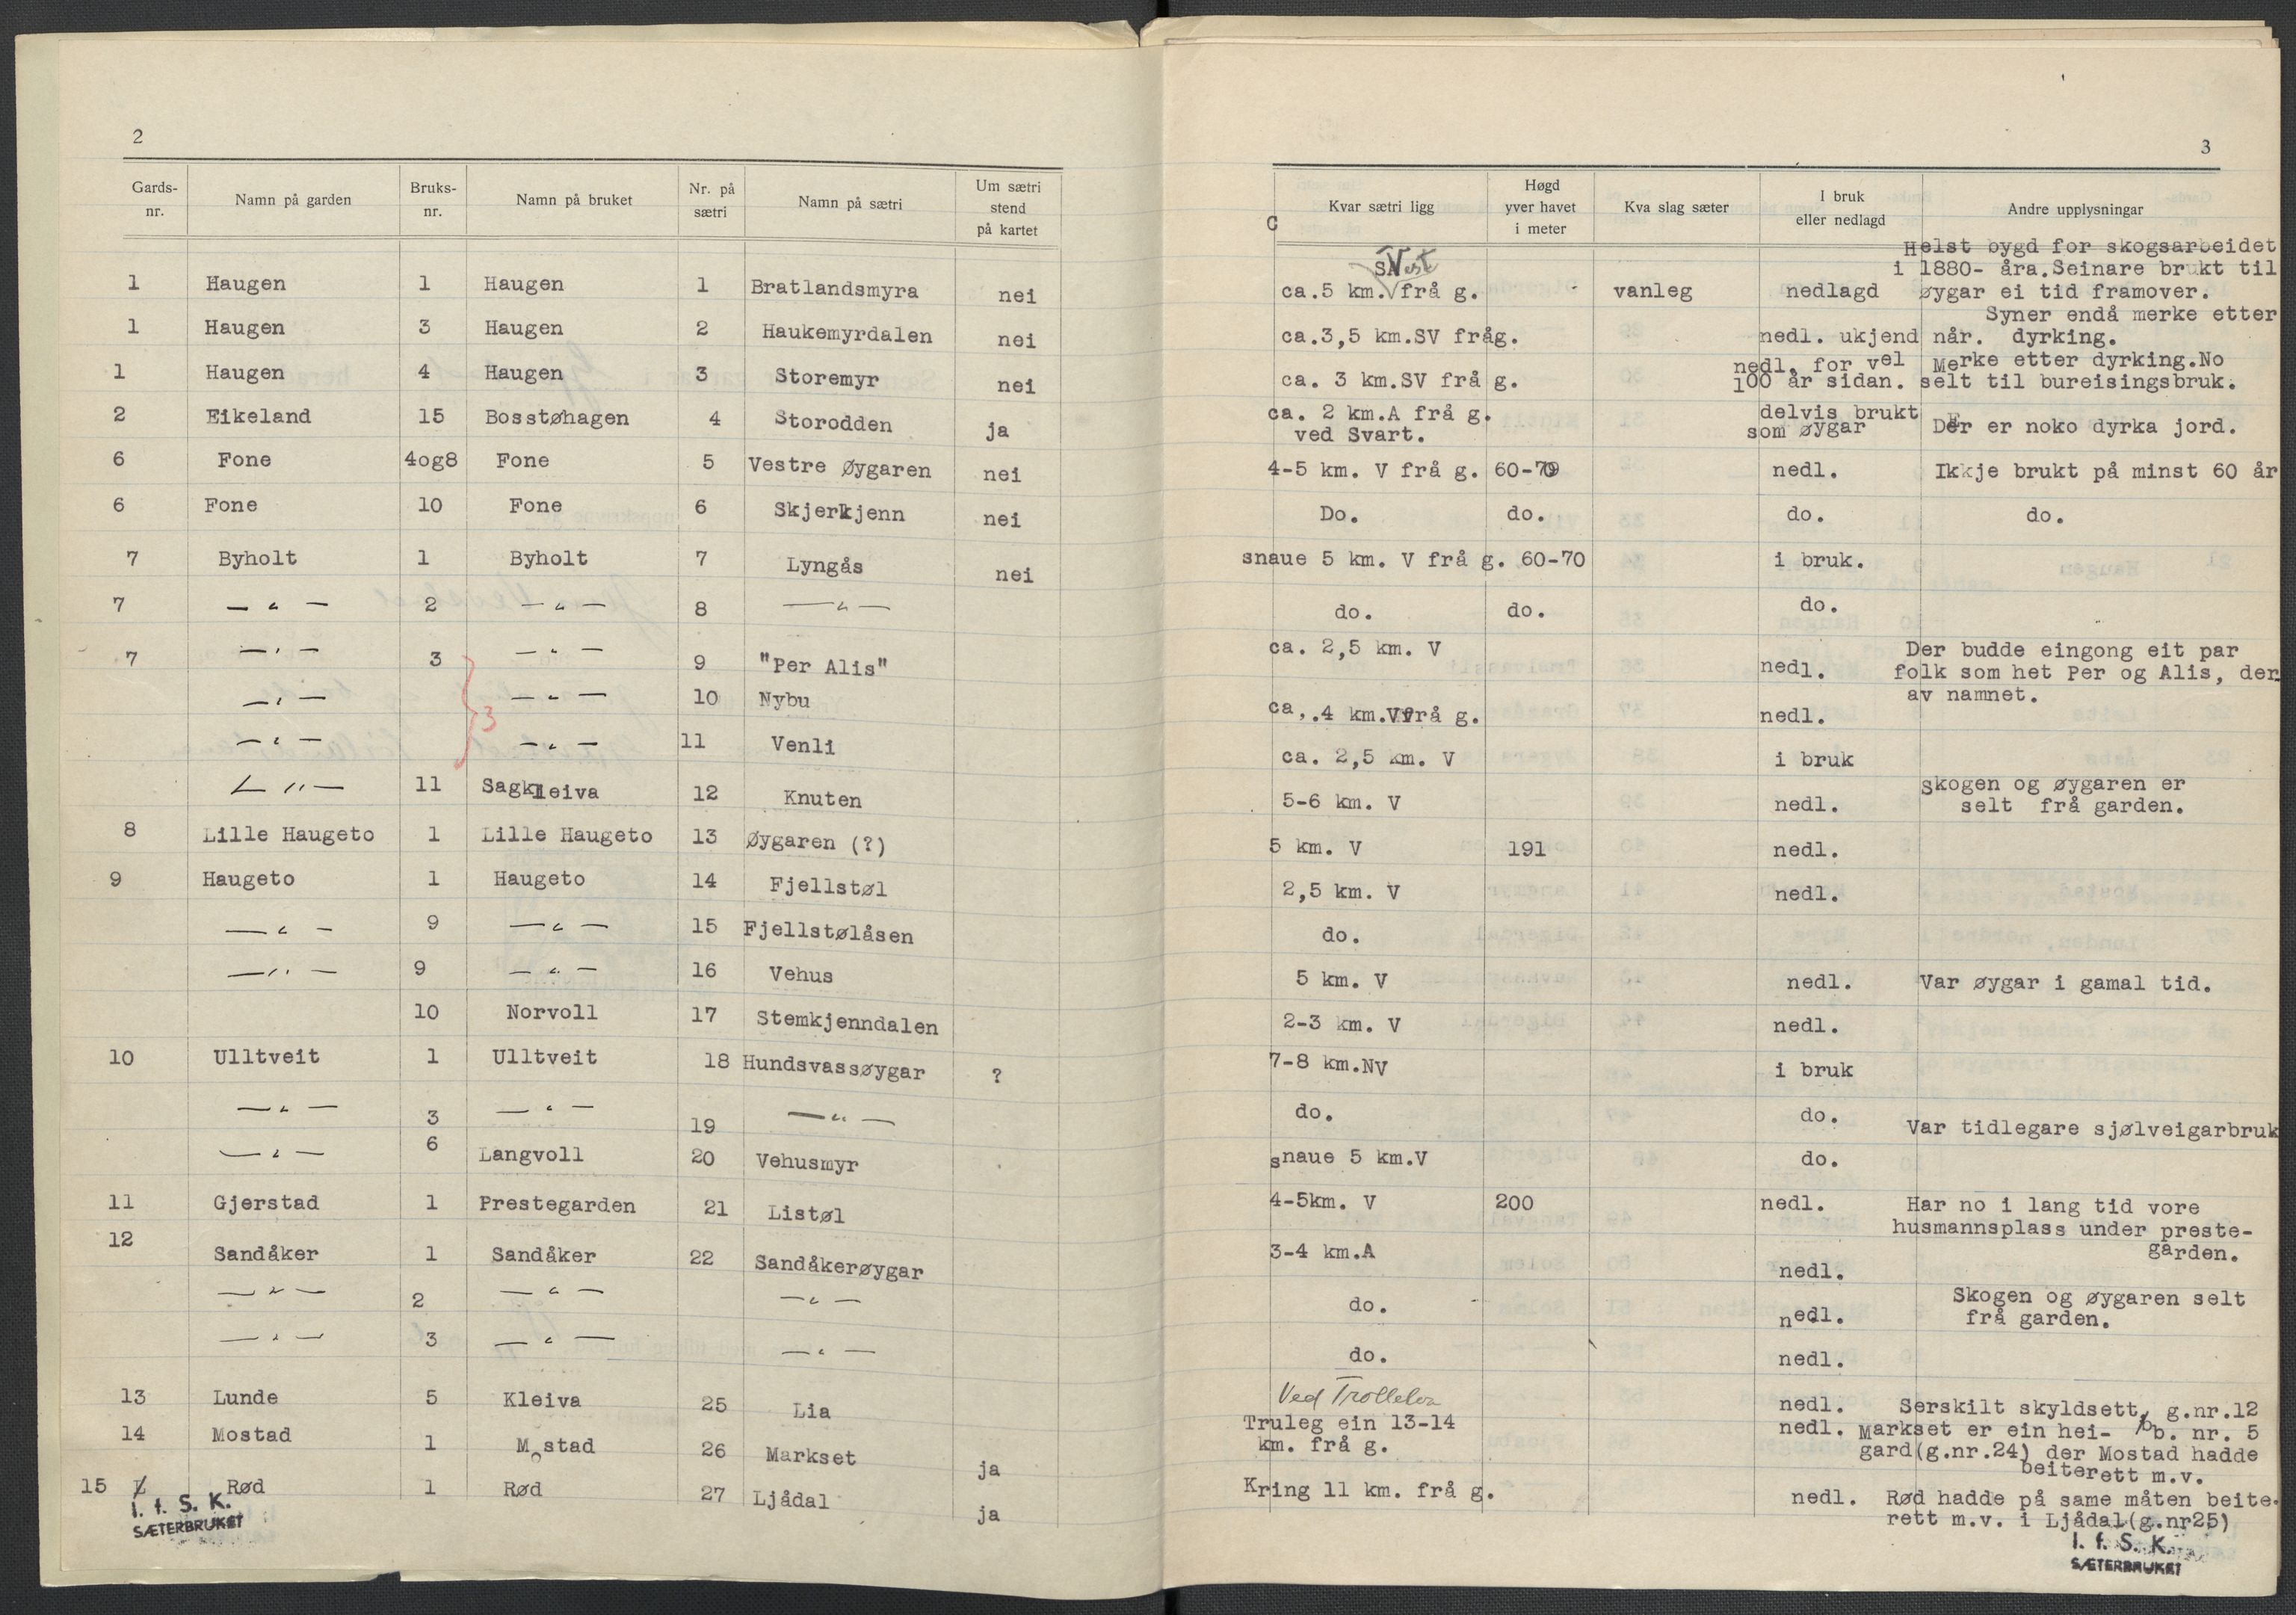 2
Gards-nr. Namn på garden Bruks-nr. Namn på bruket Nr. på sætri Namn på sætri Um sætri stend på kartet
1 Haugen 1 Haugen 1 Bratlandsmyra nei
1 Haugen 3 Haugen 2 Haukemyrdalen nei
1 Haugen 4 Haugen 3 Storemyr nei
2 Eikeland 15 Bosstøhagen 4 Storodden ja
6 Fone 4og8 Fone 5 Vestre Øygaren nei
6 Fone 10 Fone 6 Skjerkjenn nei
7 Byholt 1 Byholt 7 Lyngås nei
7 — " — 2 — " — 8 — " —
7 — " — 3 — " — 9 "Per Alis"
— " — 3 — " — 10 Nybu
— " — — " — 11 Venli
— " — 11 Sagkleiva 12 Knuten
8 Lille Haugeto 1 Lille Haugeto 13 Øygaren (?)
9 Haugeto 1 Haugeto 14 Fjellstøl
— " — 9 — " — 15 Fjellstølåsen
— " — 9 — " — 16 Vehus
10 Norvoll 17 Stemkjenndalen
10 Ulltveit 1 Ulltveit 18 Hundsvassøygar ?
— " — 3 — " — 19 — " —
— " — 6 Langvoll 20 Vehusmyr
11 Gjerstad 1 Prestegarden 21 Listøl
12 Sandåker 1 Sandåker 22 Sandåkerøygar
— " — 2 — " — — " —
— " — 3 — " — — " —
13 Lunde 5 Kleiva 25 Lia
14 Mostad 1 Mostad 26 Markset ja
15 Rød 1 Rød 27 Ljådal ja
I. f. S. K.
SÆTERBRUKET
3
Kvar sætri ligg Høgd yver havet i meter Kva slag sæter I bruk eller nedlagd Andre upplysningar
C
Helst bygd for skogsarbeidet
Vest i 1880- åra.Seinare brukt til
ca.5 km. frå g. vanleg nedlagd øygar ei tid framover.
Syner endå merke etter
ca.3,5 km.SV fråg. nedl. ukjend når. dyrking.
nedl. for vel Merke etter dyrking.No
ca. 3 km.SV frå g. 100 år sidan. selt til bureisingsbruk.
ca. 2 km.A frå g. delvis brukt
ved Svart. som øygar Der er noko dyrka jord.
4-5 km. V frå g. 60-70 nedl. Ikkje brukt på minst 60 år
Do. do. do. do.
snaue 5 km. V frå g. 60-70 i bruk.
do. do. do.
ca. 2,5 km. V Der budde eingong eit par
nedl. folk som het Per og Alis, der
av namnet.
ca,.4 km.V frå g. nedl.
ca. 2,5 km. V i bruk
skogen og øygaren er
5-6 km. V nedl. selt frå garden.
5 km. V 191 nedl.
2,5 km. V nedl.
do.
5 km. V nedl. Var øygar i gamal tid.
2-3 km. V nedl.
7-8 km.NV i bruk
do. do.
Var tidlegare sjølveigarbruk
snaue 5 km.V do.
4-5km. V 200 nedl. Har no i lang tid vore
husmannsplass under preste-
garden.
3-4 km.A nedl.
Skogen og øygaren selt
do. nedl. frå garden.
do. nedl.
Ved
nedl. Serskilt skyldsett, g.nr.12
b. nr. 5
Truleg ein 13-14 nedl. Markset er ein hei-
km. frå g. gard(g.nr.24) der Mostad hadde
beiterett m.v.
Kring 11 km. frå g. nedl. Rød hadde på same måten beite-
rett m.v. i Ljådal(g.nr25)
I. f. S. K.
SÆTERBRUKET